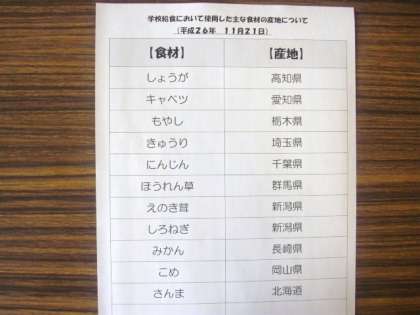 学校給食において使用した主な食材の産地について
(平成26年 11月21日)
【食材】 【産地】
しょうが 高知県
キャベツ 愛知県
もやし 栃木県
きゅうり 埼玉県
にんじん 千葉県
ほうれん草 群馬県
えのき茸 新潟県
しろねぎ 新潟県
みかん 長崎県
こめ 岡山県
さんま 北海道